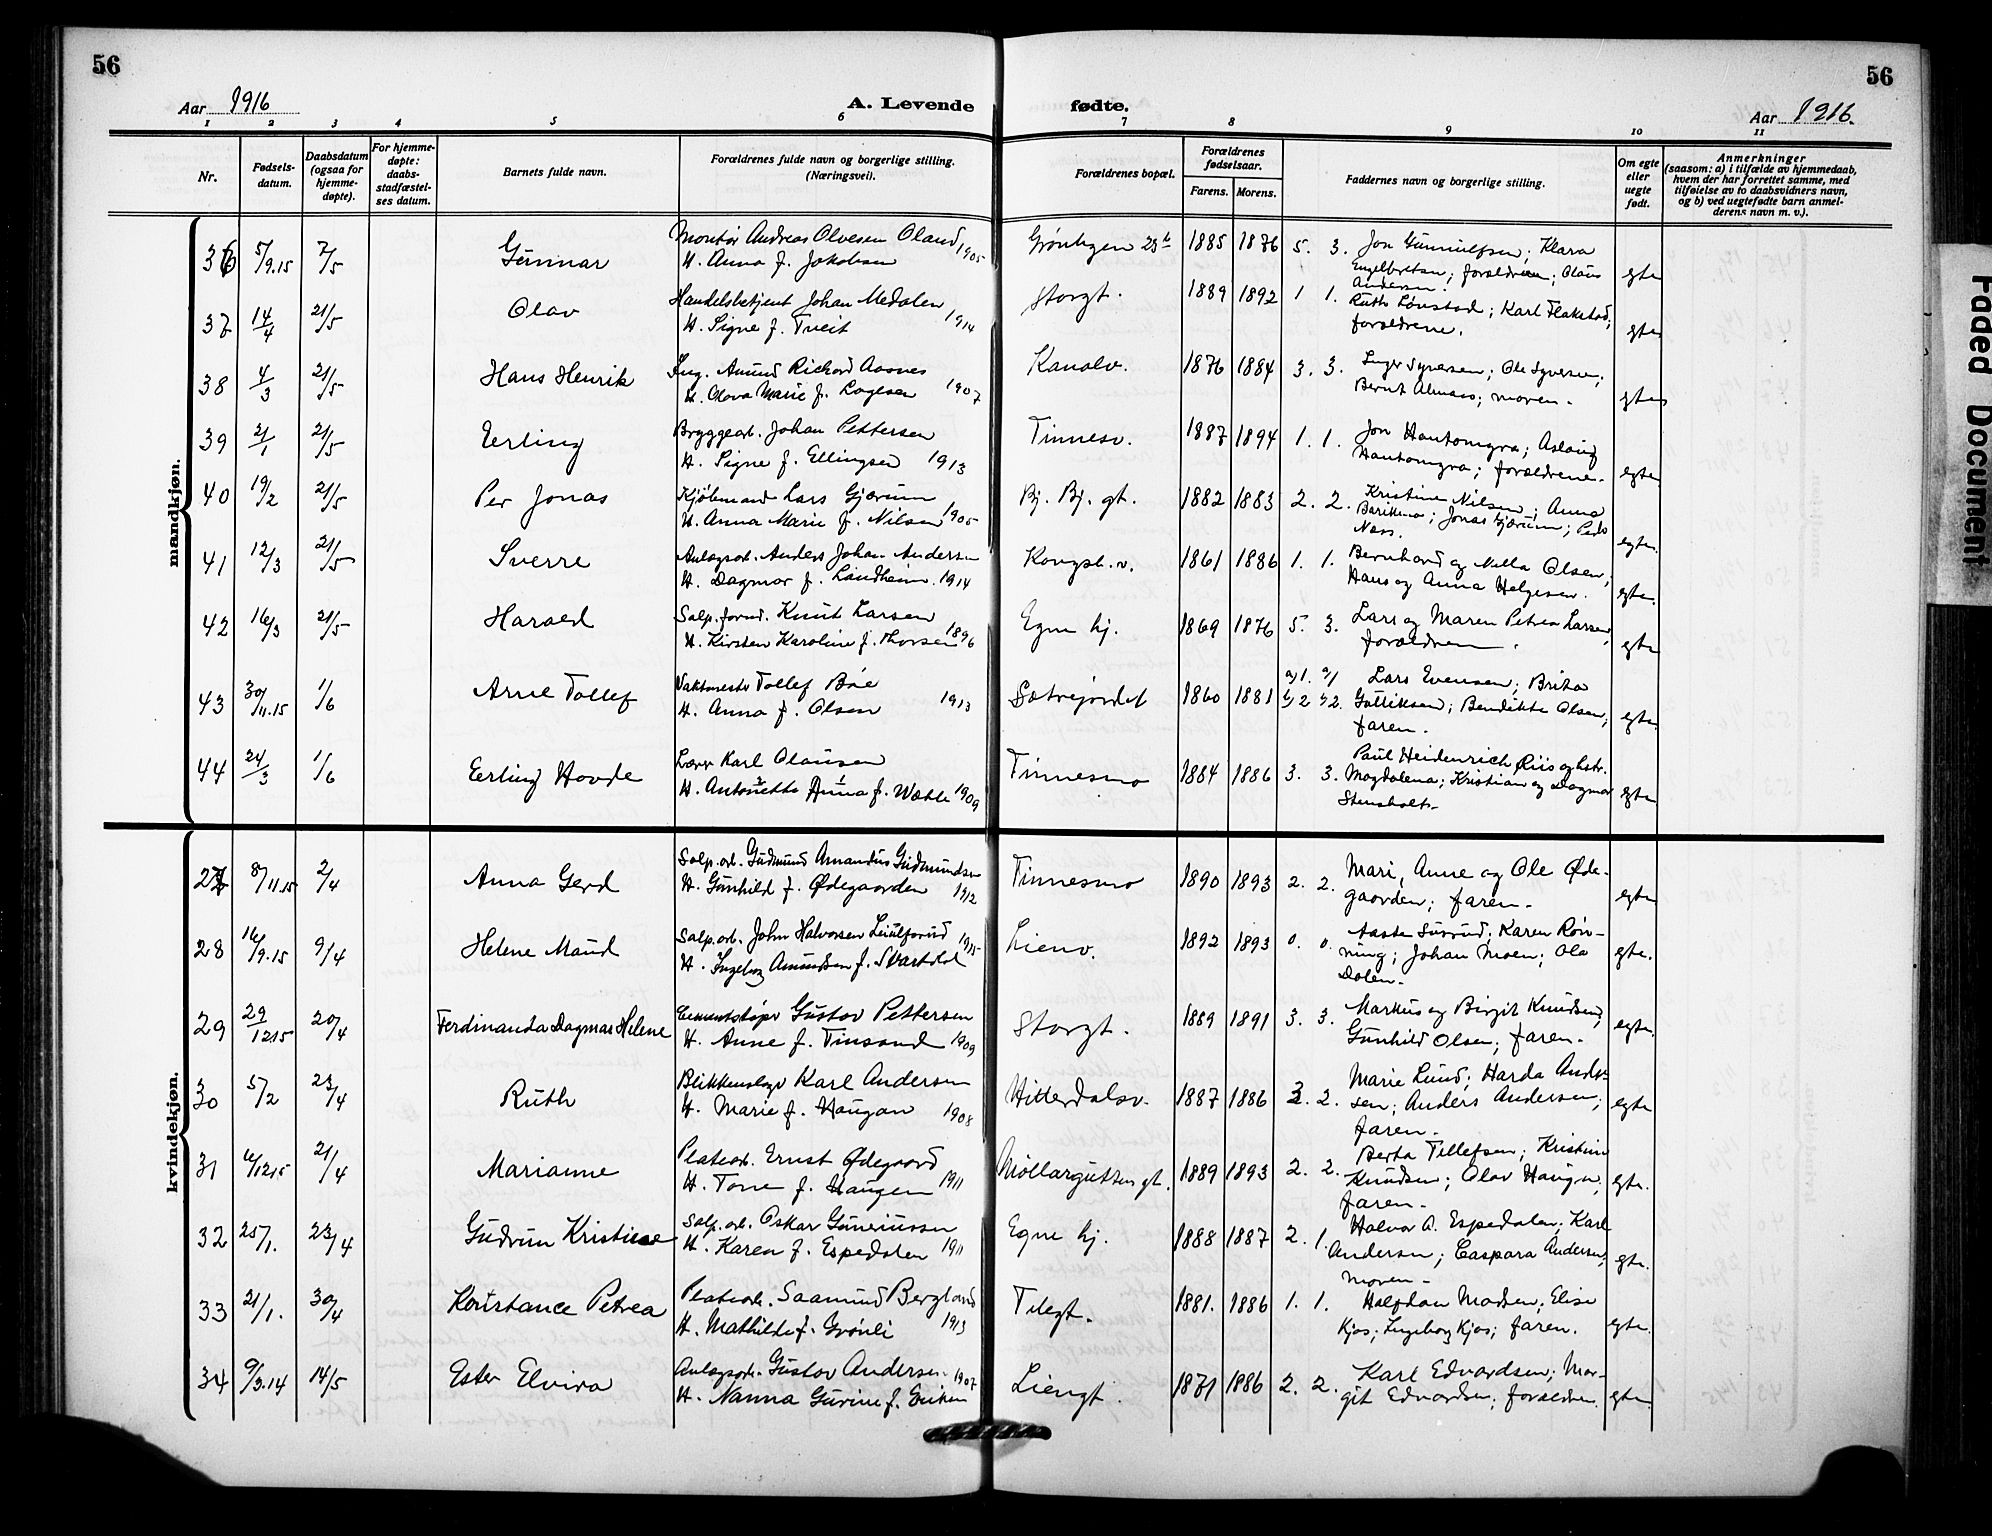 56
56
Aar 1916
A. Levende
fødte.
Aar 1916.
1 2 3 4 5 6 7 8 9 10 11
Nr.
Fødsels-
datum.
Daabsdatum
(ogsaa for
hjemme-
døpte).
For hjemme-
døpte:
daabs-
stadfæstel-
ses datum.
Barnets fulde navn.
Forældrenes fulde navn og borgerlige stilling.
(Næringsvei).
Forældrenes bopæl.
Forældrenes
fødselsaar.
Farens. Morens.
Faddernes navn og borgerlige stilling.
Om egte
eller
uegte
født.
Anmerkninger
(saasom: a) i tilfælde av hjemmedaab,
hvem der har forrettet samme, med
tilføielse av to daabsvidners navn,
og b) ved uegtefødte barn anmel-
derens navn m. v.).
mandkjøn.
36 5/9.15 7/5 Gunnar Montør Andreas Olvesen Oland 1905
H. Anna f. Jakobsen
Grønbygen 23b 1885 1876 5. 3. Jon Gunnulfsen; Klara
Engelbretsen; forældrene; Olaus
Andersen. egte
37 14/4 21/5 Olav Handelsbetjent Johan Medalen
H. Signe f. Tveit 1914
Storgt. 1889 1892 1 1. Ruth Lønstad; Karl Flakstad;
forældrene. egte
38 4/3 21/5 Hans Henrik Ing. Amund Rickard Aasnes
H. Olava Marie f. Lagesen 1907
Kanalv. 1876 1884 3. 3. Inger Syversen; Ole Syversen;
Bernt Almaas; moren. egte
39 21/1 21/5 Erling Bryggearb. Johan Pettersen
H. Signe f. Ellingsen 1913
Tinnesv. 1887 1894 1. 1. Jon Hantomyra; Aslaug
Hantomyra; forældrene. egte
40 19/2 21/5 Per Jonas Kjøbmand Lars Gjærum
H. Anna Marie f. Nilsen 1905
Bj. Bj. gt. 1882 1883 2. 2. Kristine Nilsen; Anna
Jonas Gjærum; Peder
Næss. egte.
41 12/3 21/5 Sverre Anlægsarb. Anders Johan Andersen
H. Dagmar f. Lindheim. 1914
Kongsb. v. 1861 1886 1. 1. Bernhard og Nella Olsen;
Hans og Anna Helgesen. egte.
42 16/3 21/5 Harald Salp. formd. Knut Larsen
H. Kirsten Karoline f. Thorsen 1896
Egne hj. 1869 1876 5. 3. Lars og Maren Petrea Larsen,
forældrene. egte
43 30/11.15 1/6 Arne Tollef Vaktmester Tollef Bøe
H. Anna f. Olsen 1913
Sætrejordet 1860 1881 a) 1. a) 1
b) 2 b) 2. Lars Evensen; Brita
Gulliksen; Bendikte Olsen;
faren. egte.
44 24/3 1/6 Erling Hovde Lærer Karl Olausen
H. Antonette Anna f. Wæhle 1909
Tinnesmo 1884 1886 3. 3. Paul Heidenrich Riis og hstr.
Magdalena; Kristian og Dagmar
Stensholt. egte
kvindekjøn.
27 8/11.15 2/4 Anna Gerd Salp. arb. Gudmund Amandus Gudmundsen
H. Gunhild f. Ødegaarden 1912
Tinnesmo 1890 1893 2. 2. Mari, Anne og Ole Øde-
gaarden; faren. egte
28 16/9.15 9/4 Helene Maud Salp. arb. John Halvorsen 1915
H. Ingeborg Amundsen f. Svartdal
Lienv. 1892 1893 0. 0. Aaste Susrud; Karen Røn-
ning; Johan Moen; Ola
Dalen. egte.
29 29/1215 20/4 Ferdinanda Dagmar Helene Cementstøper Gustav Pettersen
H. Anne f. Tinsand 1909
Storgt. 1889 1891 3. 3. Markus og Birgit Knudsen;
Gunhild Olsen; faren. egte.
30 5/2 23/4 Ruth Blikkenslager Karl Andersen
H. Marie f. Haugan 1908
Hitterdalsv. 1887 1886 3. 2. Marie Lund; Harda Ander-
sen; Anders Andersen;
faren. egte
31 6/1215 21/4 Marianne Platearb. Ernst Ødegaard
H. Tone f. Haugen 1911
Møllarguttens gt. 1889 1893 2. 2. Berta Tellefsen; Kristine
Knudsen; Olav Haugen;
faren. egte.
32 25/1. 23/4 Gudrun Kristine Salp. arb. Oskar Gunerussen
H. Karen f. Espedalen 1911
Egne hj. 1888 1887 2. 1. Halvor A. Espedalen; Karl
Andersen; Caspara Andersen;
moren. egte.
33 21/1. 30/4 Konstance Petrea Platearb. Saamund Bergland
H. Mathilde f. Grønli 1913
Tilegt. 1881. 1886 1. 1. Halfdan Madsen; Elise
Kjos; Ingeborg Kjos; faren. egte.
34 9/3.14 14/5 Ester Elvira Anlægsarb. Gustav Andersen 1907
H. Nanna Gurine f. Eriksen
Liengt. 1871 1886 2. 2. Karl Edvardsen; Mar-
git Edvardsen; forældrene. egte.
Faded Document